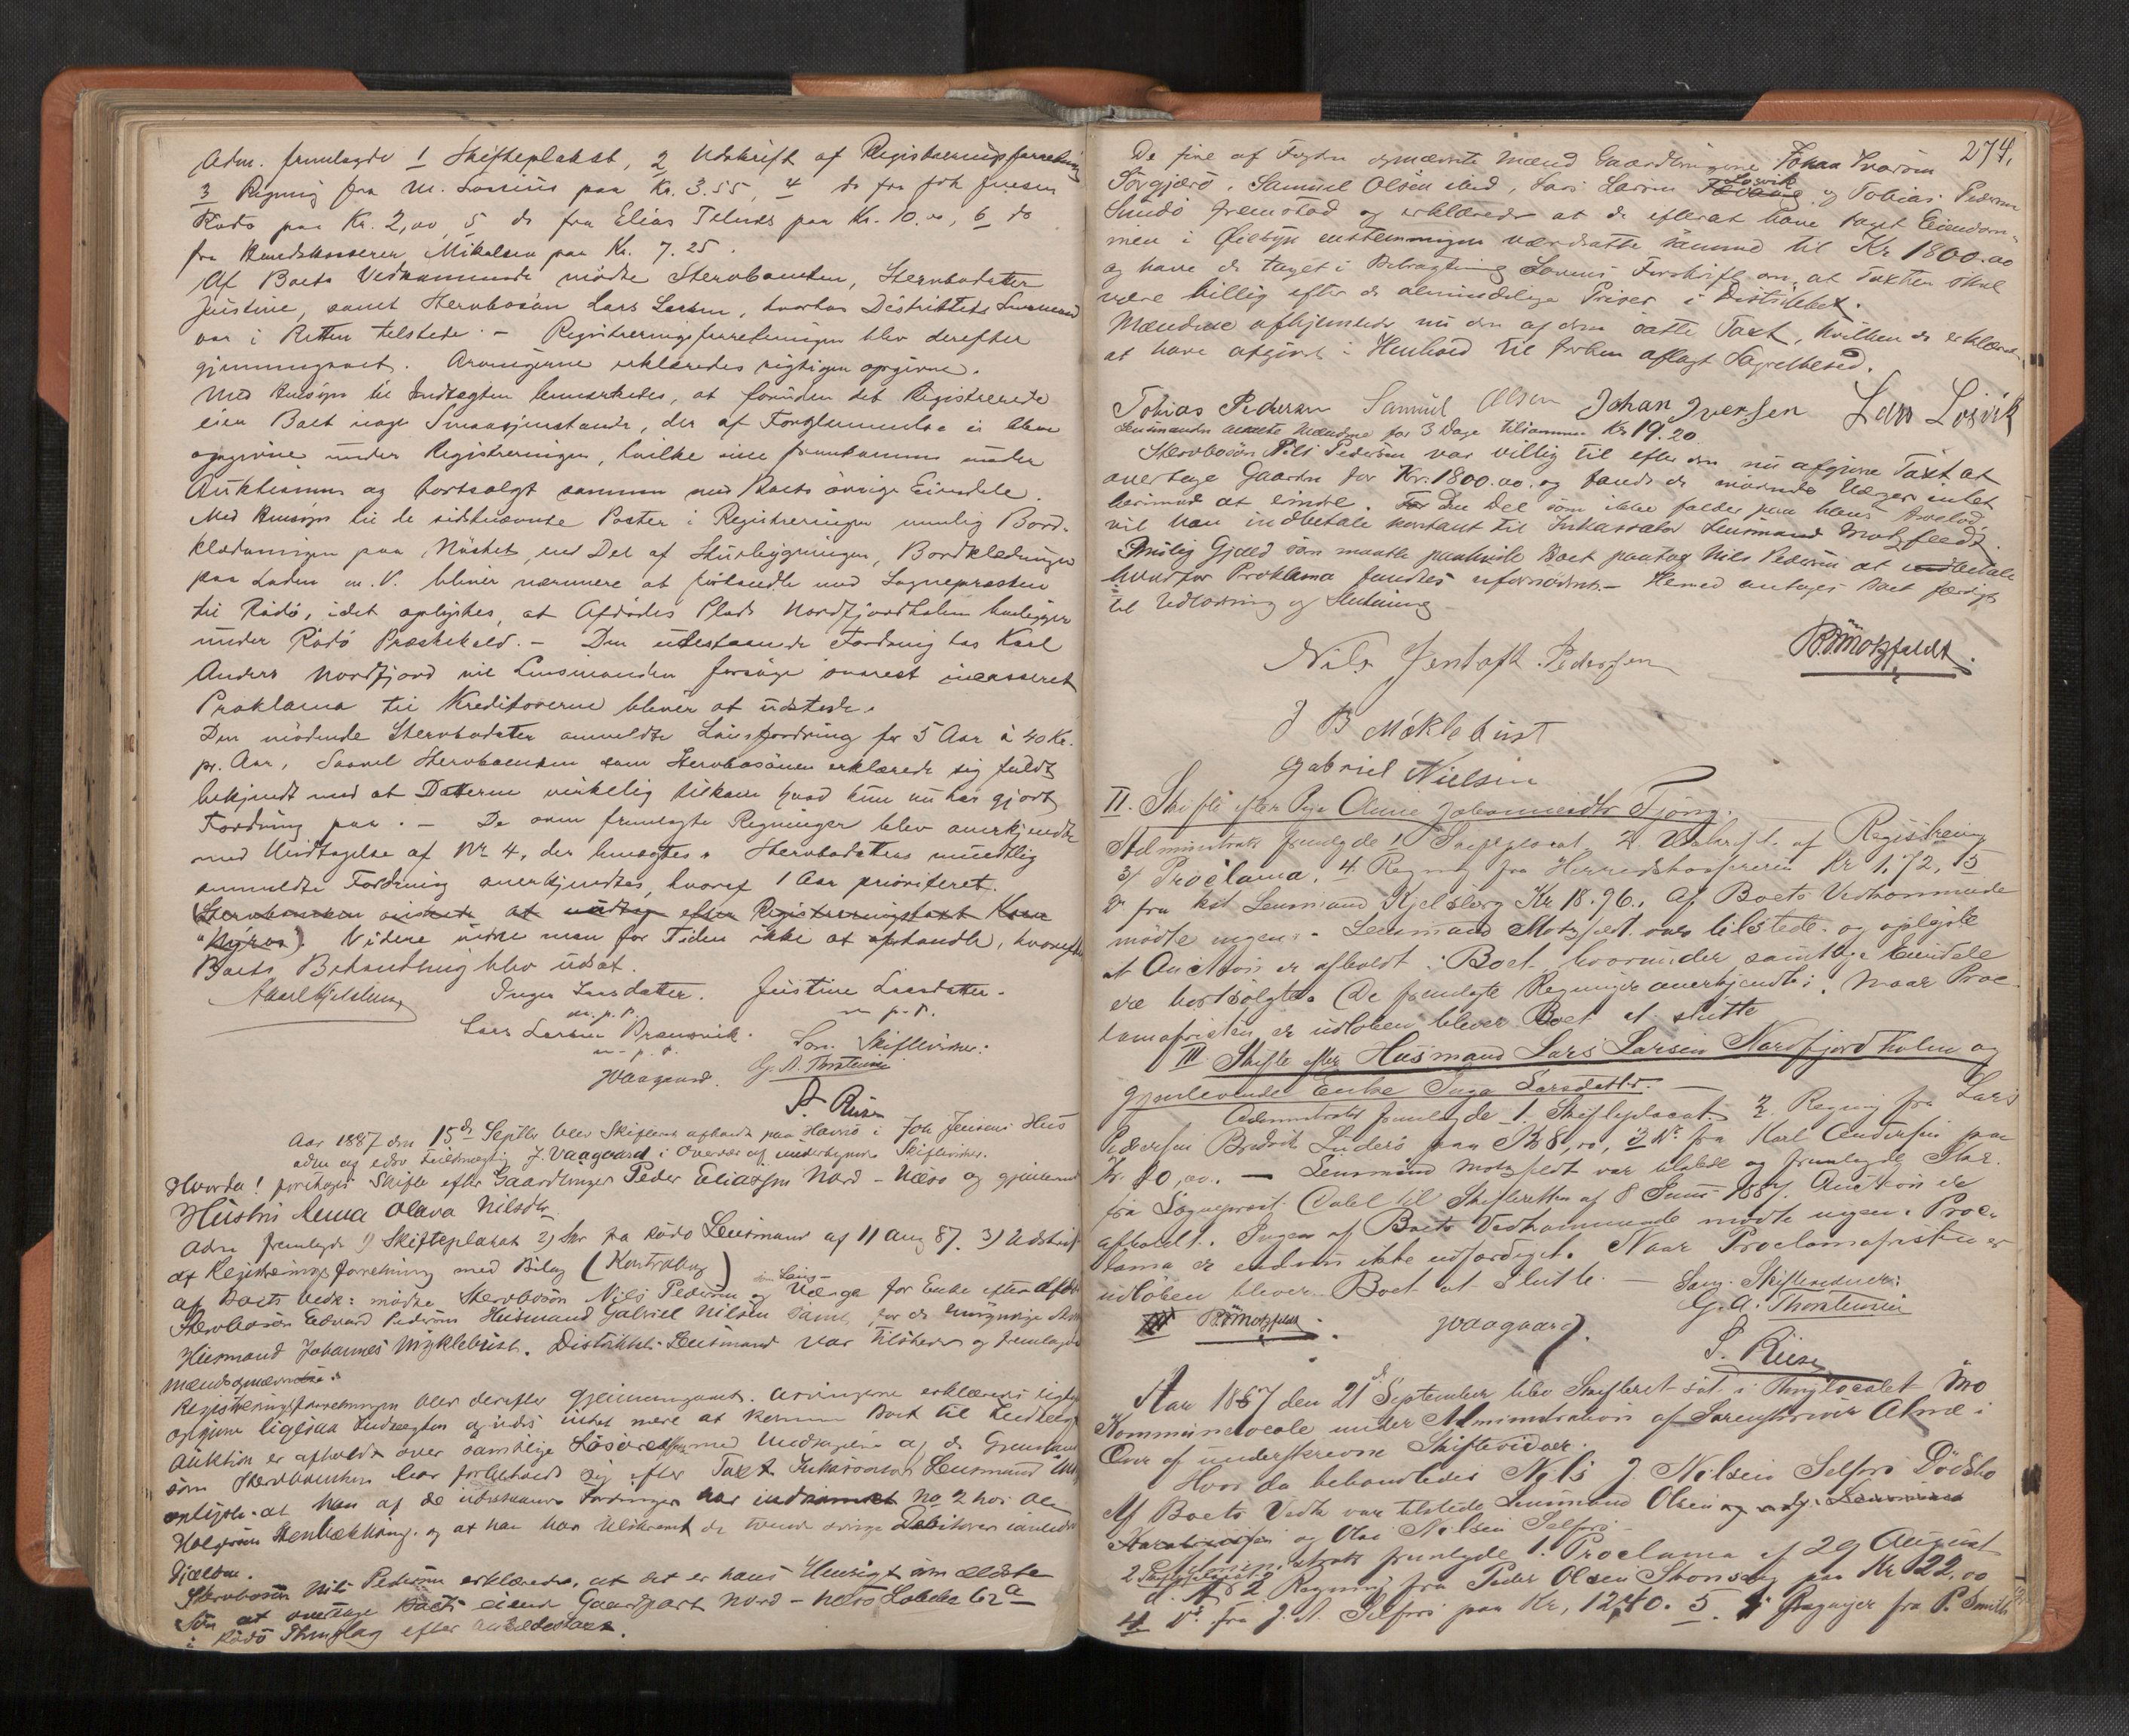 Adm. fremlagde 1 Skifteplakat, 2 Udskrift af Registreringsforretning
3 Regning fra M. Lossius paa Kr. 3.55, 4 do fra Joh Jensen
Rödö paa Kr. 2,00, 5 do fra Elias Telnes paa Kr. 10.00, 6 do
fra Mikalsen paa Kr. 7.25.
Af Boets Vedkommende mödte Stervboenken, Stervbodatter
Justine, samt Stervbosön Lars Larsen, hvorhos Distriktets Lensmand
var i Retten tilstede. – Registreringsforretningen blev derefter
gjennemgaaet. Arvingerne erklæredes rigtigen opgivne.
Med Hensyn til Indtægten bemærkedes, at foruden det Registrerede
eier Boet nogle Smaagjenstande, der af Forglemmelse ei blev
opgivne under Registreringen, hvilke vil fremkomme under
Auktionen og bortsolgt sammen med Boets övrige Eiendele.
Med Hensyn til de sidstnævnte Poster i Registreringen nemlig Bord-
klædningen paa Nöstet, en Del af Stuebygningen, Bordklædningen
paa Laden m. V. bliver nærmere at forhandle med Sognepresten
til Rödö, idet oplystes, at Afdödes Plads Nordfjordholmen beligger
under Rödö Præstebold. – Den udestaaende Fordring hos Karl
Anders Nordfjord vil Lensmanden forsöge snarest incasseret
Proklama til Kreditorerne bliver at udstede.
Den mödende Stervbodatter anmeldte Lönsfordring for 5 Aar à 40 Kr.
pr. Aar, Saavel Stervboenken som Stervbosönnen erklærede sig fuldt
bekjendt med at Datteren virkelig tilkom hvad hun nu har gjort
Fordring paa. – De oven fremlagte Regninger blev anerkjendte
med Undtagelse af No 4, der benægtes. Stervbodatterens mundtlig
anmeldte Fordring anerkjendtes, hvoraf 1 Aar prioriteret.
(Stervboenken önskede at udtage efter Registreringstaxt Koen
"Nyros"). Videre var man for Tiden ikke at afhandle, hvorefter
Boets Behandling blev udsat.
Inger Larsdatter. Justine Larsdatter.
m. p. P. m p. P.
Lars Larsen Bransvik. Som Skiftevidner:
m. p. P.
JVaagaard. G. A. Thorsteinsen
P. Riise
Aar 1887 den 15de Septbr blev Skifteret afholdt paa Havnö i Joh Jensens Hus
adm af edsv Fuldmægtig J. Vaagaard i Overvær af undertegnede Skiftevidner.
Hvorda! foretoges Skifte efter Gaardbruger Peder Eliassen Nord-Næsö og gjenlevende
Hustru Anna Olava Nilsdtr
Adm fremlagde 1) Skifteplakat 2) Skr fra Rödö Lensmand af 11 Aug 87. 3) Udskrift
af Registreringsforretning med Bilag (Kontrabog)
af Boets Vedk: mödte Stervbosön Nils Pedersen og som Laug- Værge for Enke efter afdöde
Stervbosön Edvard Pedersen Husmand Gabriel Nilsen samt, for de umyndige
Husmand Johannes Myklebust. Distriktets Lensmand var tilstede og fremlagde
Mændsopnævnelse.
Registreringsforretningen blev derefter gjennemgaaet. Arvingerne erklæredes rigtig
opgivne ligesaa Indtægten og vides intet mere at komme Boet til Indtægt
Auktion er afholdt over samtlige Lösöre med Undtagelse af de Gjenstande
som Stervboenken har forbeholdt sig efter Taxt Inkassator Lensmand
oplyste at han af de udestaaende Fordringer har inddrevet No 2 hos Ole
Holgersen og at han har tilskrevet de tvende övrige Debitorer
Gjælden.
Stervbosön Nils Pedersen erklærede, at det er hans Hensigt som ældste
Sön at overtage Boets eiende Gaardpart Nord-Næsö Löbeno 62a
i Rödö Thinglag efter
274.
De fire af Fogden opnævnte Mænd Gaardbrugerne Johan Iversen
Sörgjærö, Samuel Olsen ibid, Lars Larsen Losvik og Tobias Pedersen
Sundö fremstod og erklærede at de efterat have taget Eiendom-
men i Öiesyn enstemmigen værdsatte samme til Kr 1800.00
og have de taget i Betragtning Lovens Forskrift om, at Taxten skal
være billig efter de almindelige Priser i Distriktet.
Mændene afhjemlede nu den af dem satte Taxt, hvilken de erklærede
at have afgivet i Henhold til forhen aflagt Lagrettesed.
Tobias Pedersen Samuel Olsen Johan Iversen Lars Losvik
Lensmanden Mændene for 3 Dage tilsammen Kr 19.20
Stervbosön Nils Pedersen var villig til efter den nu afgivne Taxt at
overtage Gaarden for Kr: 1800.00. og fandt de mödende Værger intet
herimod at erindre. For Den Del som ikke falder paa hans Arvelod
vil han indbetale kontant til Inkassator Lensmand Motzfeldt
Mulig Gjæld som maatte paahvile Boet paatog Nils Pedersen at indbetale
hvorfor Proklama fandtes ufornödent. – Hermed antages Boet færdigt
til Udlodning og Slutning
Nils Jentoft Pedersen
Motzfeldt.
J B Möklebust
Gabriel Nielsen
II. Skifte efter Pige Oline Johannesdtr Tjöng.
Administrator fremlagde 1 Skifteplacat 2. Udskrift af Registrering
3) Proclama. 4 Regning fra Herredskassereren Kr 1,72, 5
Do fra kst Lensmand Kjelsberg Kr 18.96. Af Boets Vedkommende
mödte ingen. Lensmand Motzfeldt var tilstede og oplyste
at Auction er afholdt i Boet, hvorunder samtlige Eiendele
ere bortsolgte. De fremlagte Regninger anerkjendtes. Naar Proc-
lamafristen er udloben bliver Boet at slutte
III Skifte efter Husmand Lars Larsen Nordfjordholm og
gjenlevende Enke Inga Larsdatter. –
Administrator fremlagde 1. Skifteplacat 2. Regning fra Lars
Pedersen Bredvik paa Kr 8,00, 3 Do fra Karl Andersen paa
Kr. 10,00. – Lensmand Motzfeldt var tilstede og fremlagde Skr.
fra Sogneprest
 til Skifteretten af 8 Juni 1887. Auction er
afholdt. Ingen af Boets Vedkommende mödte ingen. Proc-
lama er endnu ikke udfærdiget. Naar Proclamafristen er
udloben bliver Boet at slutte. – Som Skiftevidner:
G. A. Thorsteinsen
Motzfeldt. JVaagaard.
P. Riise
Aar 1887 den 21de September blev Skifteret sat i Thinglocalet Mo
Kommunelocale under Administration af Sorenskriver Alme i
Over af underskrevne Skiftevidner.
Hvor da behandledes Nils J. Nilsen Selfors Dödsbo
Af Boets Vedk var tilstede Lensmand Olsen
og Olai Nilsen Selfors
Administrator fremlagde 1. Proclama af 29 August
2 Skifteplacat
3 Regning fra Peder Olsen paa Kr 22,00
4 Do. fra J. A. Selfors paa Kr, 12,40. 5. fra P. Smith